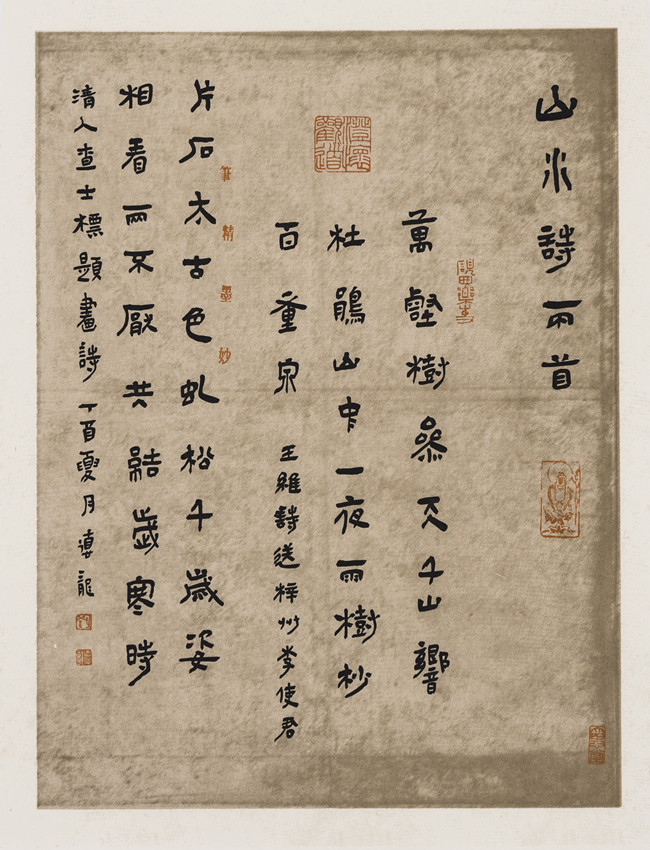 山水詩兩首
萬壑樹參天千山響
杜鵑山中一夜雨樹杪
百重泉
王維詩送梓州李使君
片石太古色虬松千歲姿
相看兩不厭共結歲寒時
清人查士標題畫詩丁酉夏月
澄懷觀道
筆精墨妙